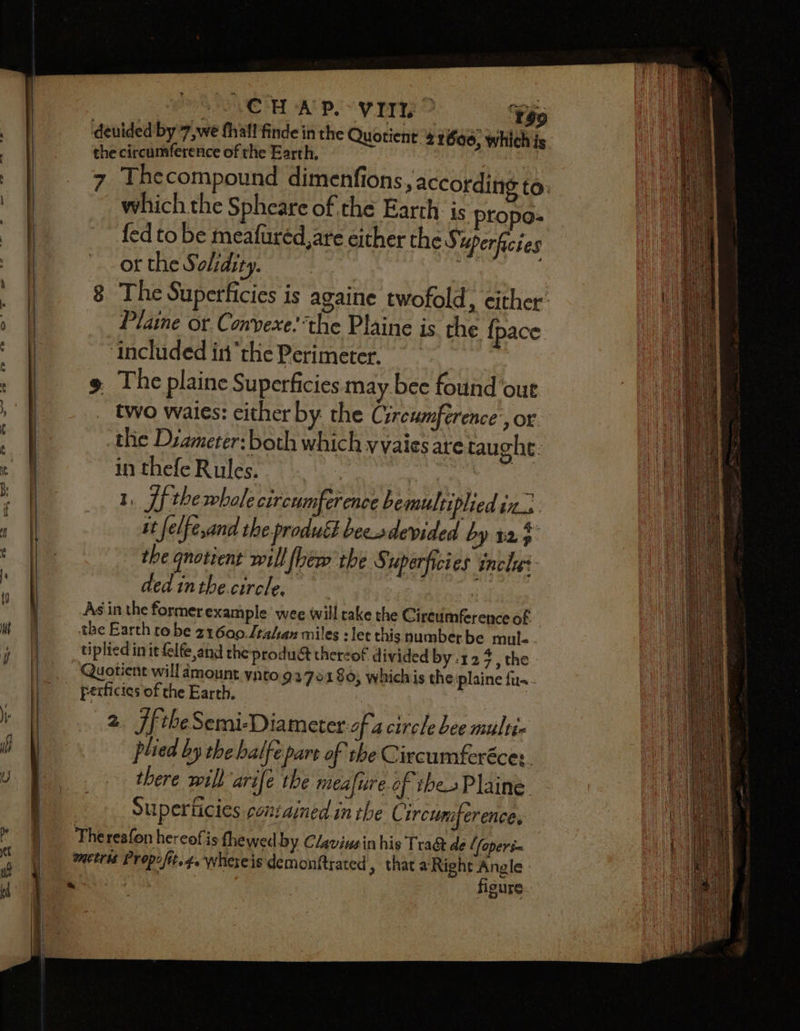 CHAP. VIII. 199
deuided by 7, we ſhall finde in the Quotient 21600, which is
the circumference of the Earth.
7 The compound dimenſions, according to
which the Spheare of the Earth is propo-
ſed to be meaſured, are either the Superficies
or the Solidity.
8 The Superficies is againe twofold, either
Plaine or Convexe: the Plaine is the ſpace
included in the Perimeter.
9 The plaine Superficies may bee found out
two waies: either by the Circumference, or
the Diameter: both which vvaies are taught
in theſe Rules.
1. If the whole circumference be multiplied in
it ſelfe, and the product bee devided by 12 4/7
the quotient will ſhew the Superficies inclu-
ded in the circle.
As in the former example wee will take the Circumference of
the Earth to be 21600 Italian miles: let this number be mul-
tiplied in it ſelfe, and the product thereof divided by 12 4/7, the
Quotient will amount vnto 9270180, which is the plaine ſu-
perficies of the Earth.
2. If the Semi-Diameter of a circle bee multi-
plied by the halfe part of the Circumferēce:
there will ariſe the meaſure of the Plaine
Superficies contained in the Circumference.
The reaſon hereof is ſhewed by Clavius in his Tract de Iſoperi-
metris Propoſit. 4. where is demonſtrated, that a Right Angle
figure